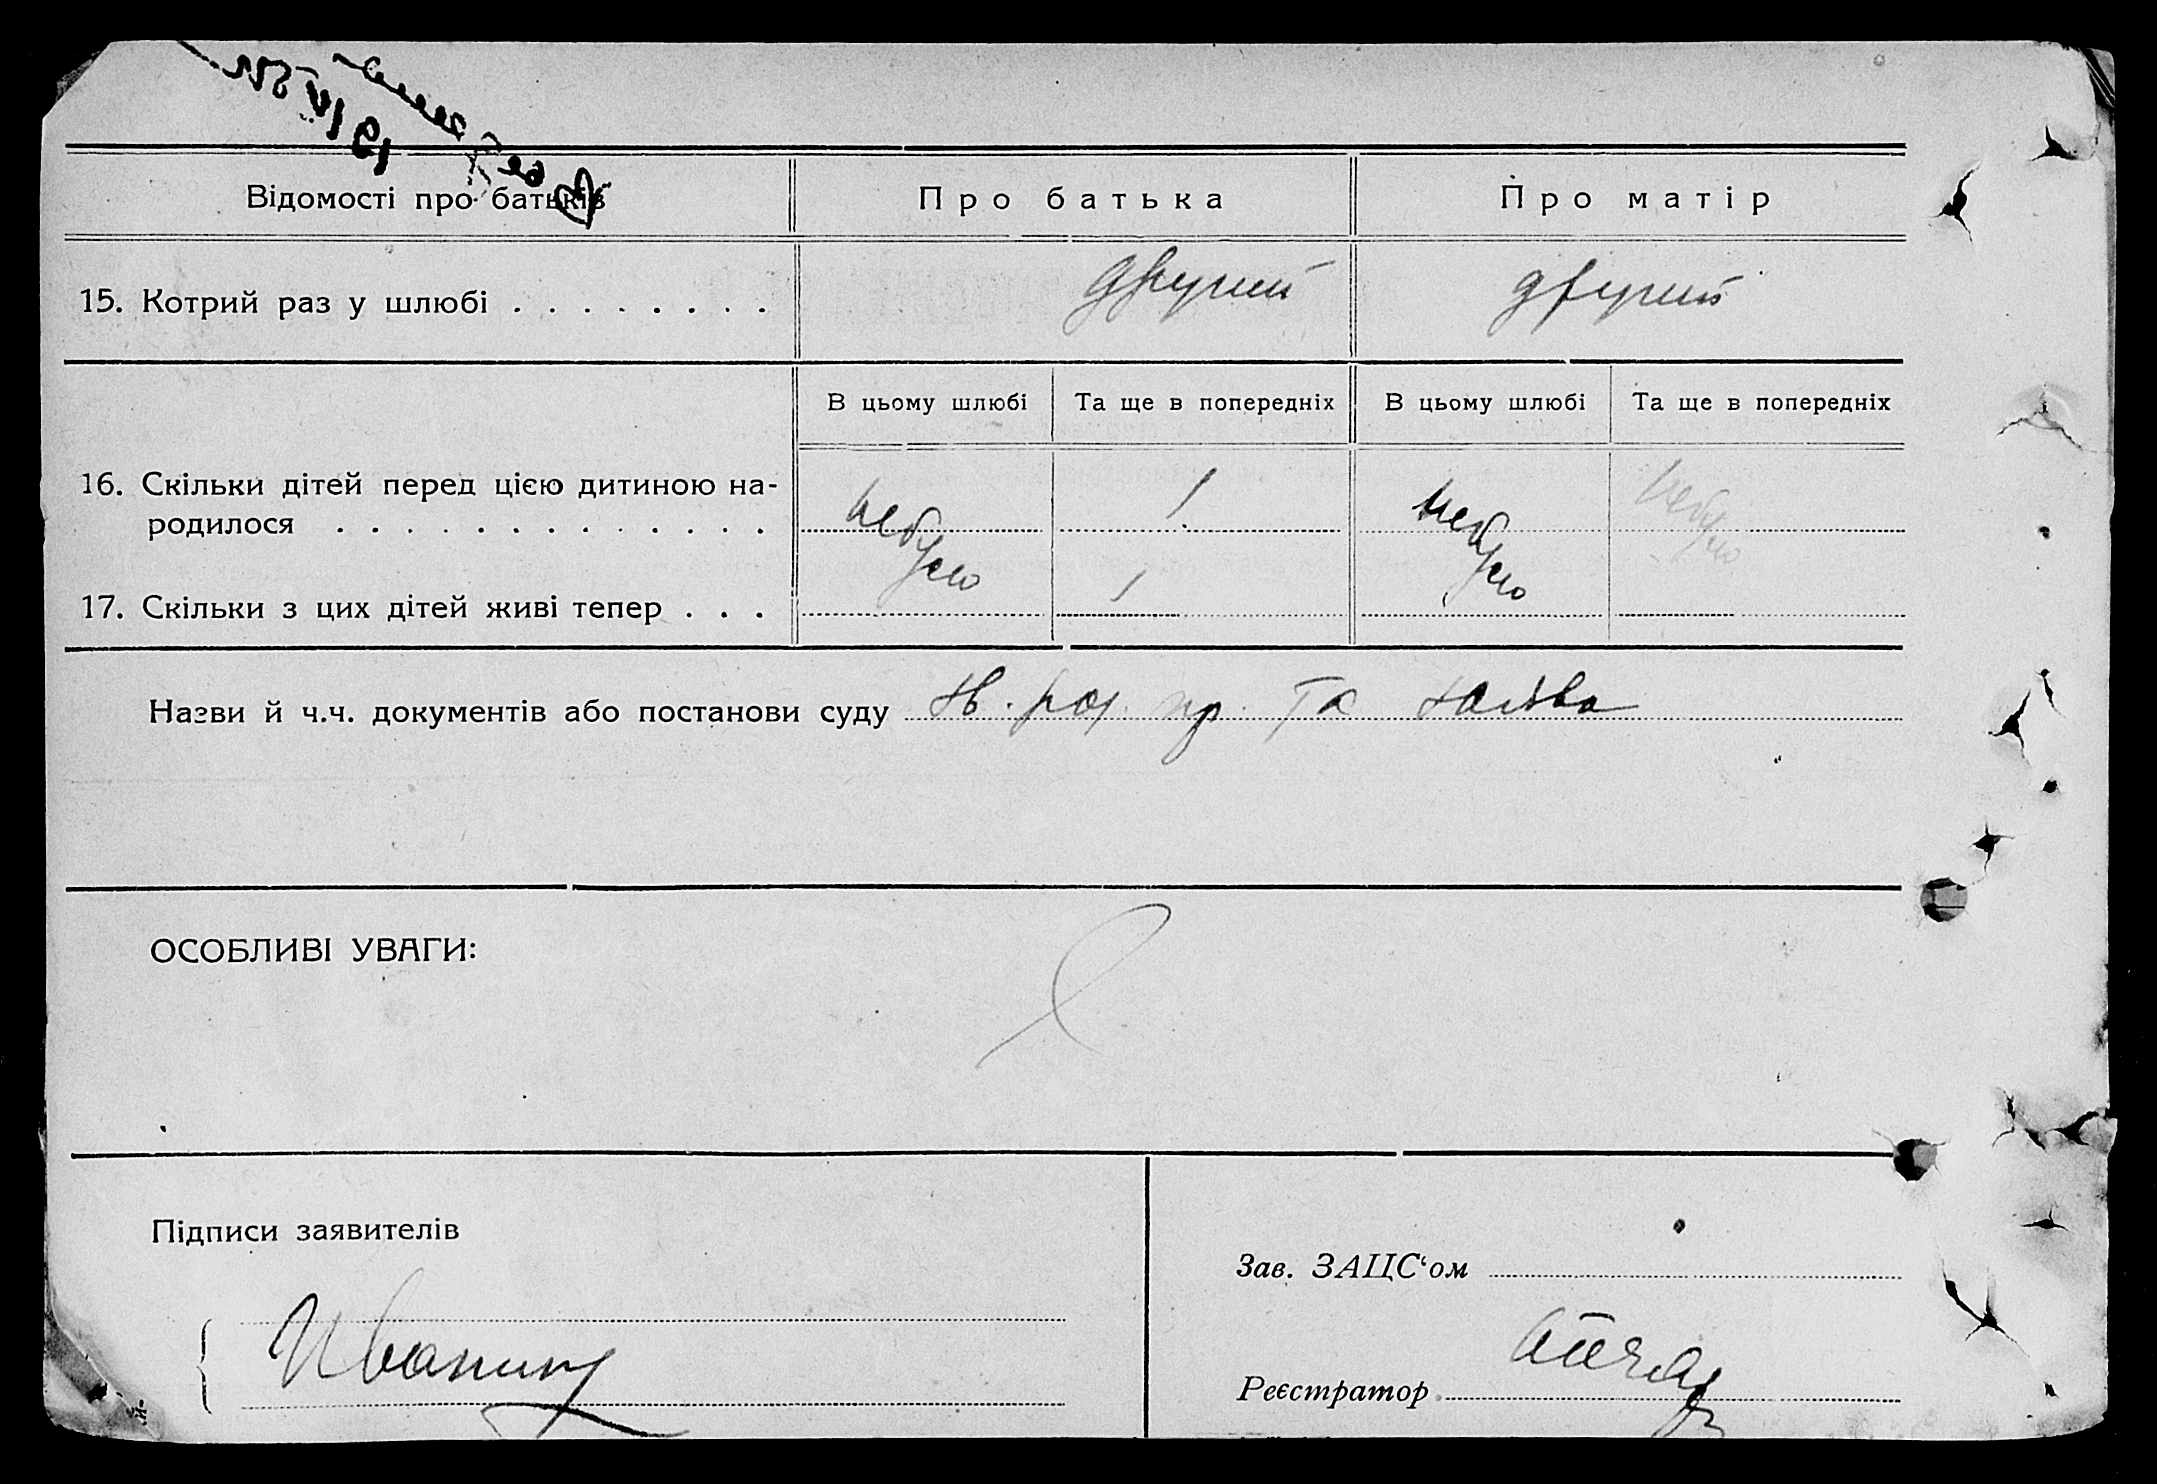 Відомості про батьків
Про батька
Про матір
15. Котрий раз у шлюбі . . . . . . . .
другий
другий
В цьому шлюбі
Та ще в попередніх
В цьому шлюбі
Та ще в попередніх
16. Скільки дітей перед цією дитиною на-
родилося . . . . . . . . . . . . .
небуло
1
небуло
небуло
17. Скільки з цих дітей живі тепер . . .
1
Назви й ч.ч. документів або постанови суду
пр. та
ОСОБЛИВІ УВАГИ:
Підписи заявителів
Зав. ЗАЦС‘ом
Реєстратор